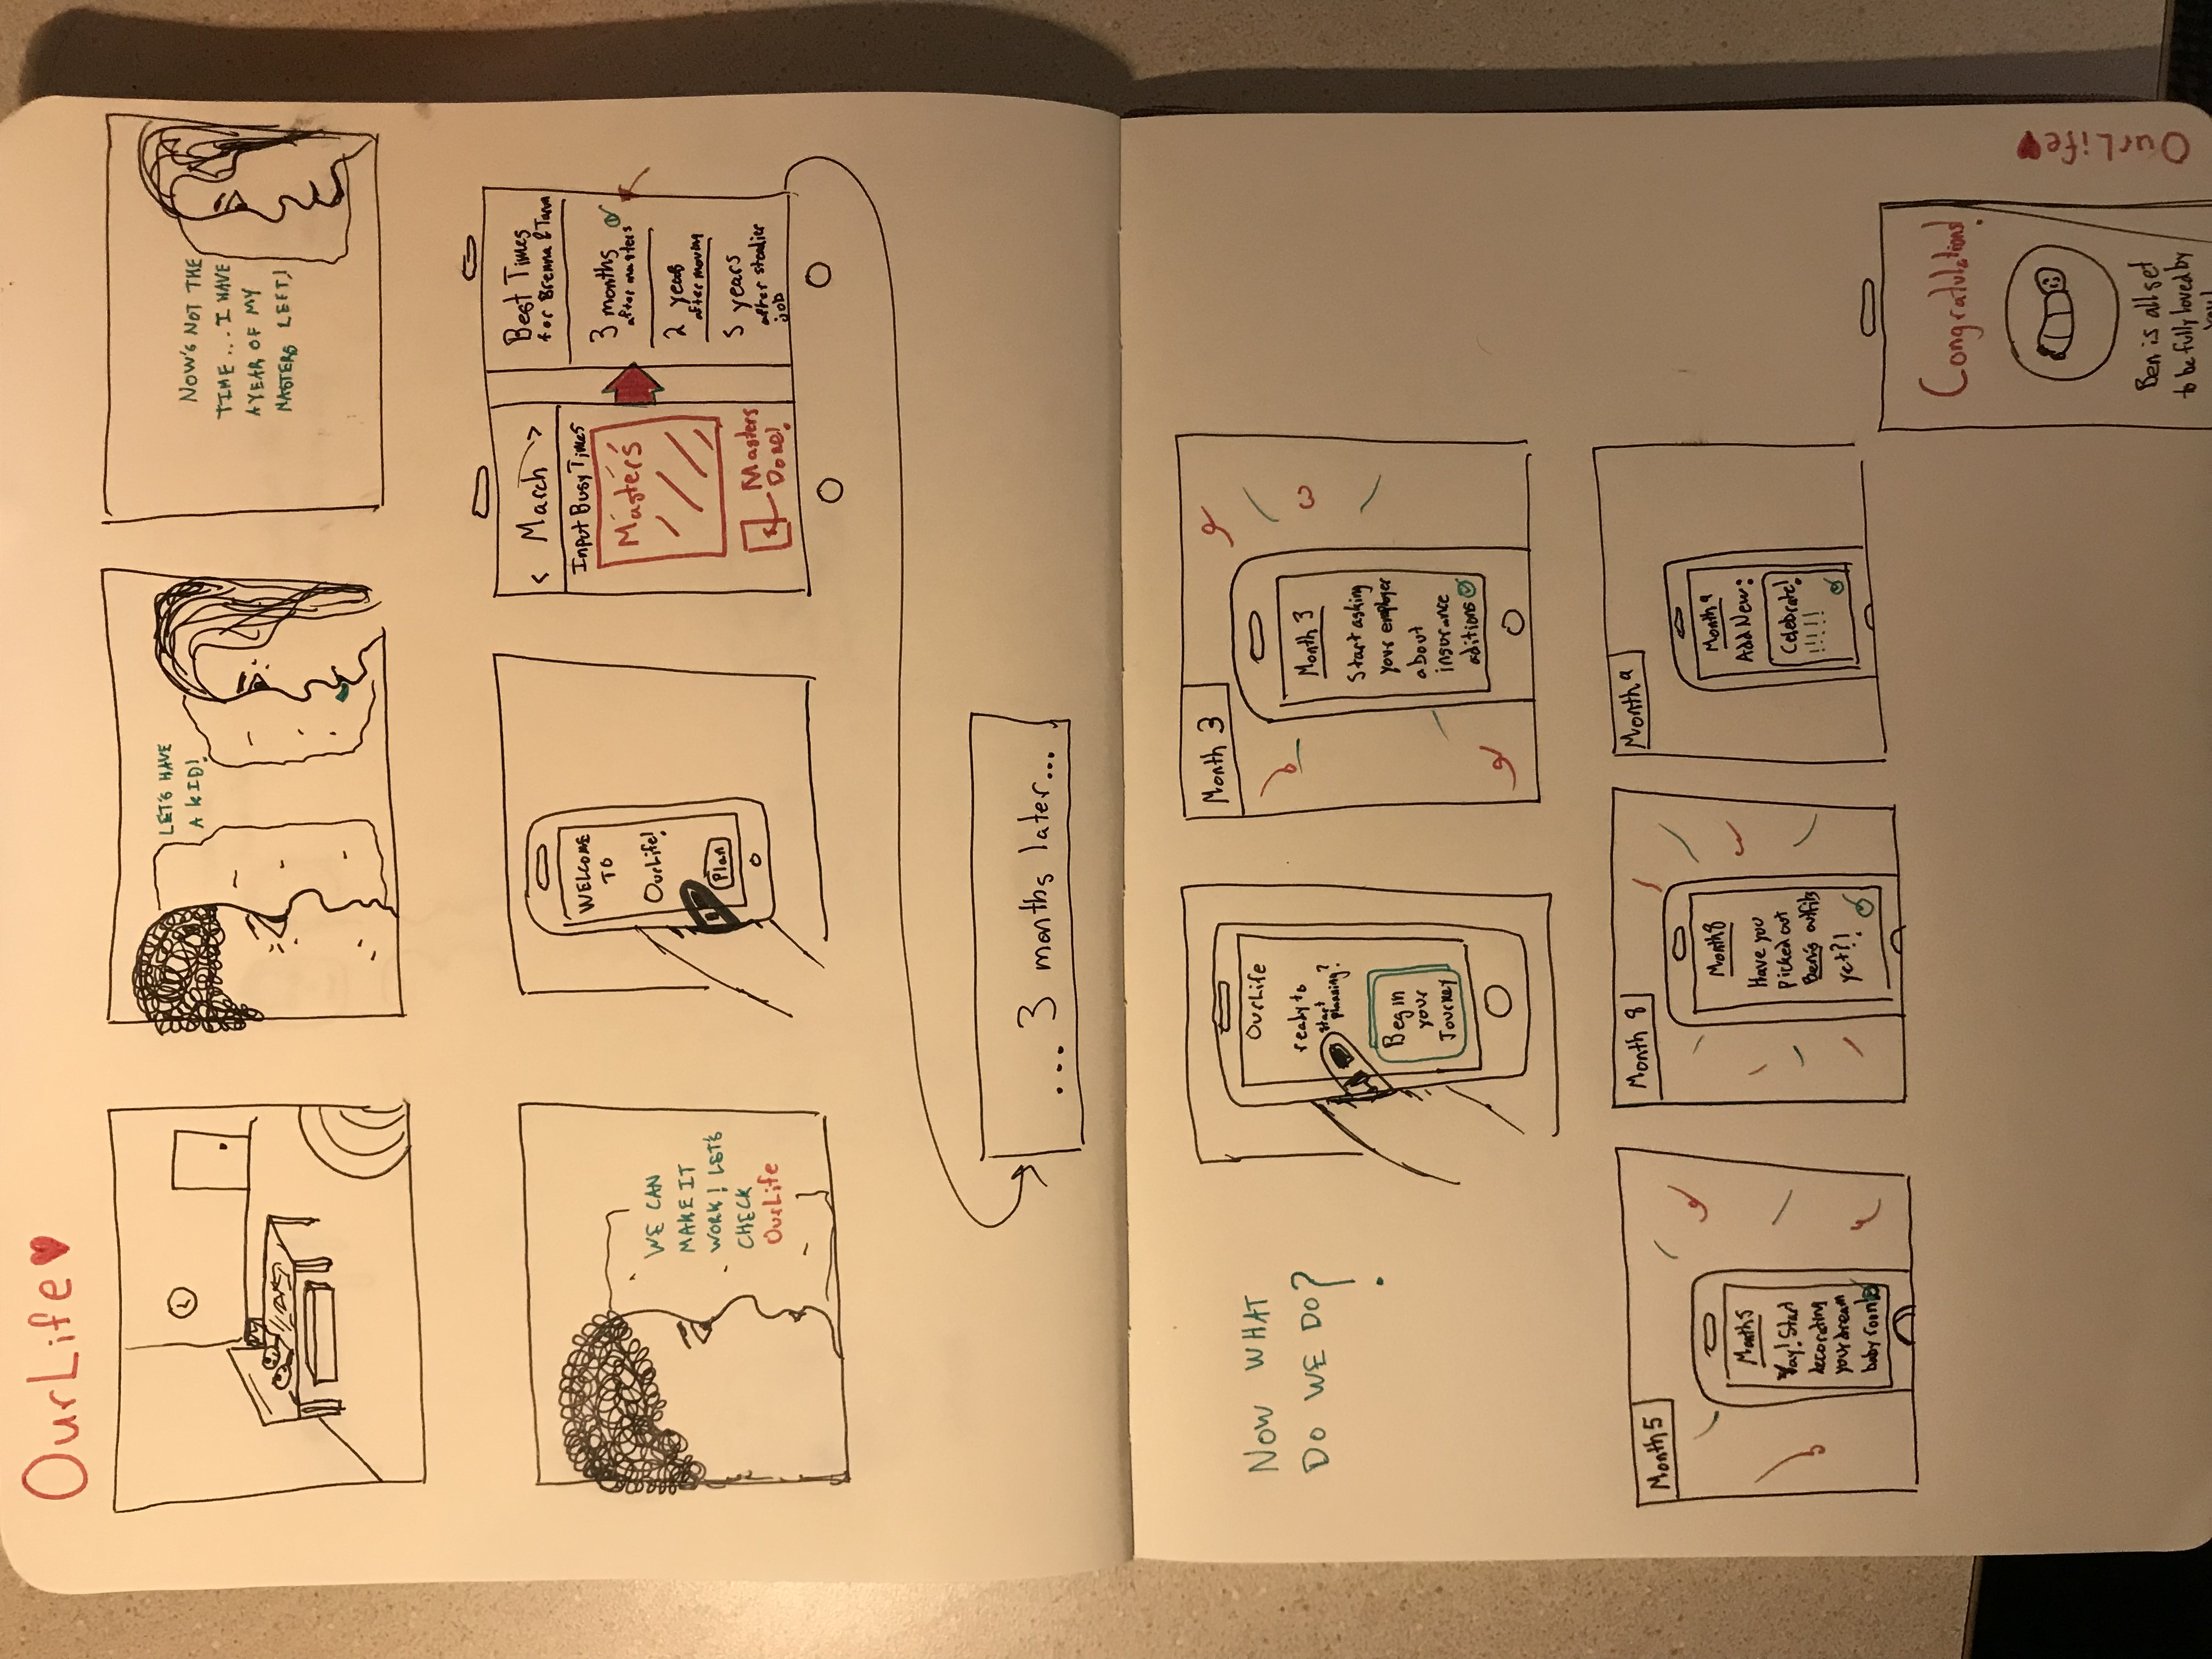 OurLife
LET'S HAVE
A KID!
NOW'S NOT THE
TIME... I HAVE
A YEAR OF MY
MASTERS LEFT!
WE CAN
MAKE IT
WORK! LET'S
CHECK
OurLife
WELCOME
TO
OurLife!
Plan
< March >
Input Busy Times
Masters
Masters
Done!
Best Times
for Brenna &
3 months
after masters
2 years
after moving
5 years
after steadier
job
... 3 months later...
NOW WHAT
DO WE DO?
OurLife
ready to
start
planning?
Begin
your
Journey
Month 3
Month 3
Start asking
your employer
about
insurance
aditions
Month 5
Month 5
Yay! Start
decorating
your dream
baby room!
Month 8
Month 8
Have you
picked out
Ben's outfits
yet?!
Month 9
Month 9
Add New:
Celebrate!
!!!!!
Congratulations!
Ben is all set
to be fully loved by
you!
OurLife